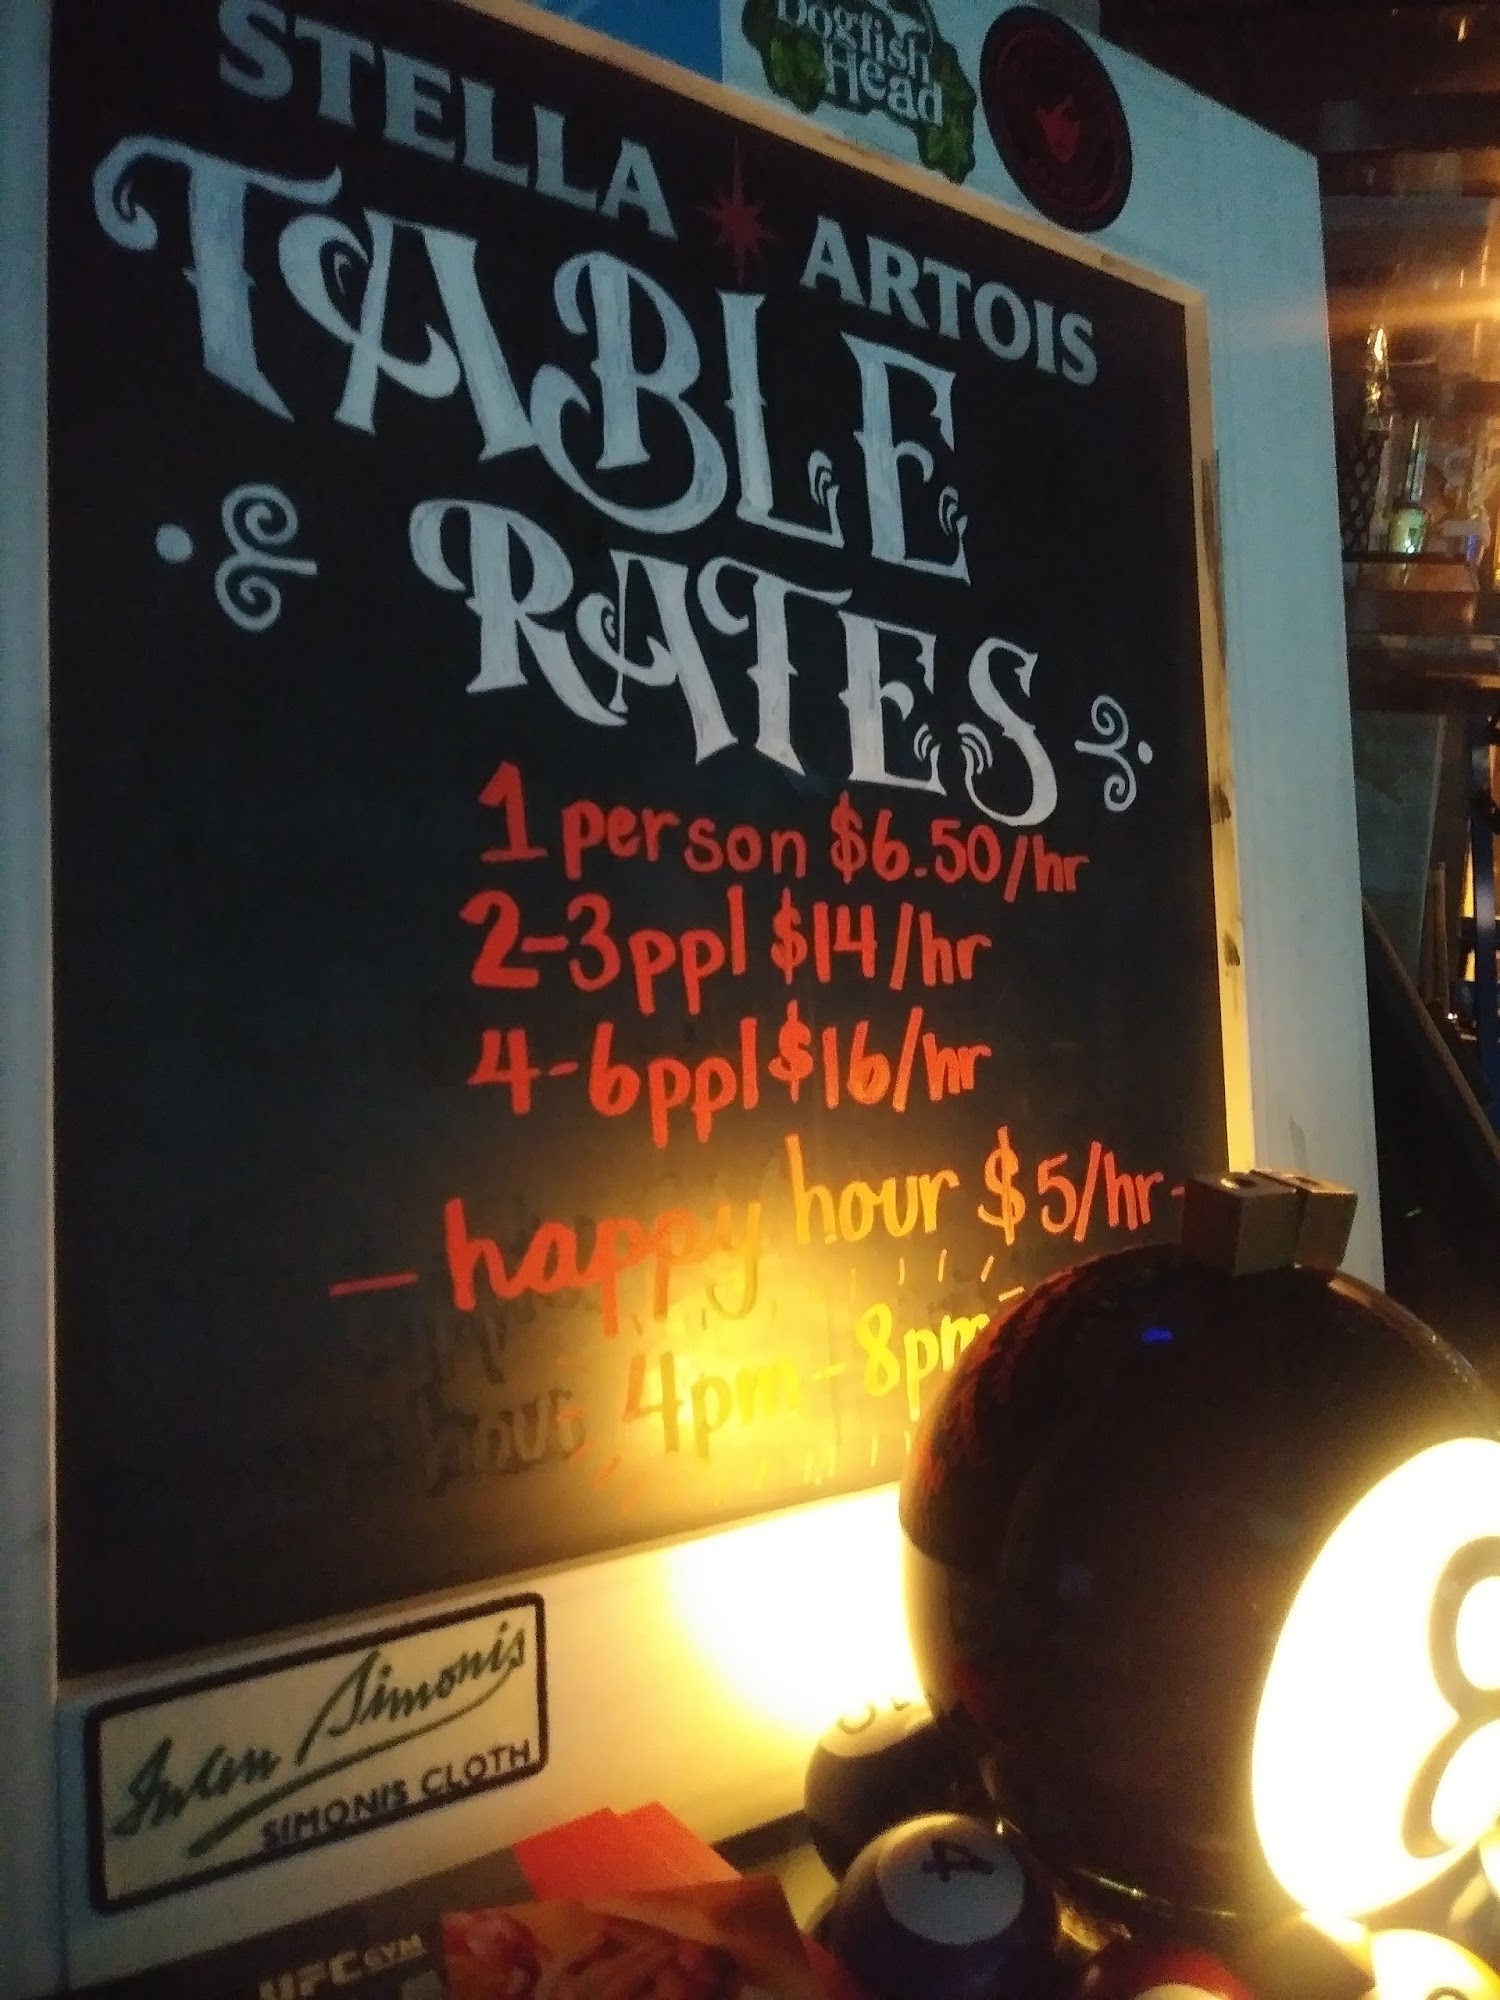 Dogfish
Head
STELLA ARTOIS
TABLE
RATES
1 person $6.50/hr
2-3ppl $14/hr
4-6ppl $16/hr
- happy hour $5/hr -
4pm-8pm
hour
Iwan Simonis
SIMONIS CLOTH
UFC GYM
8
4